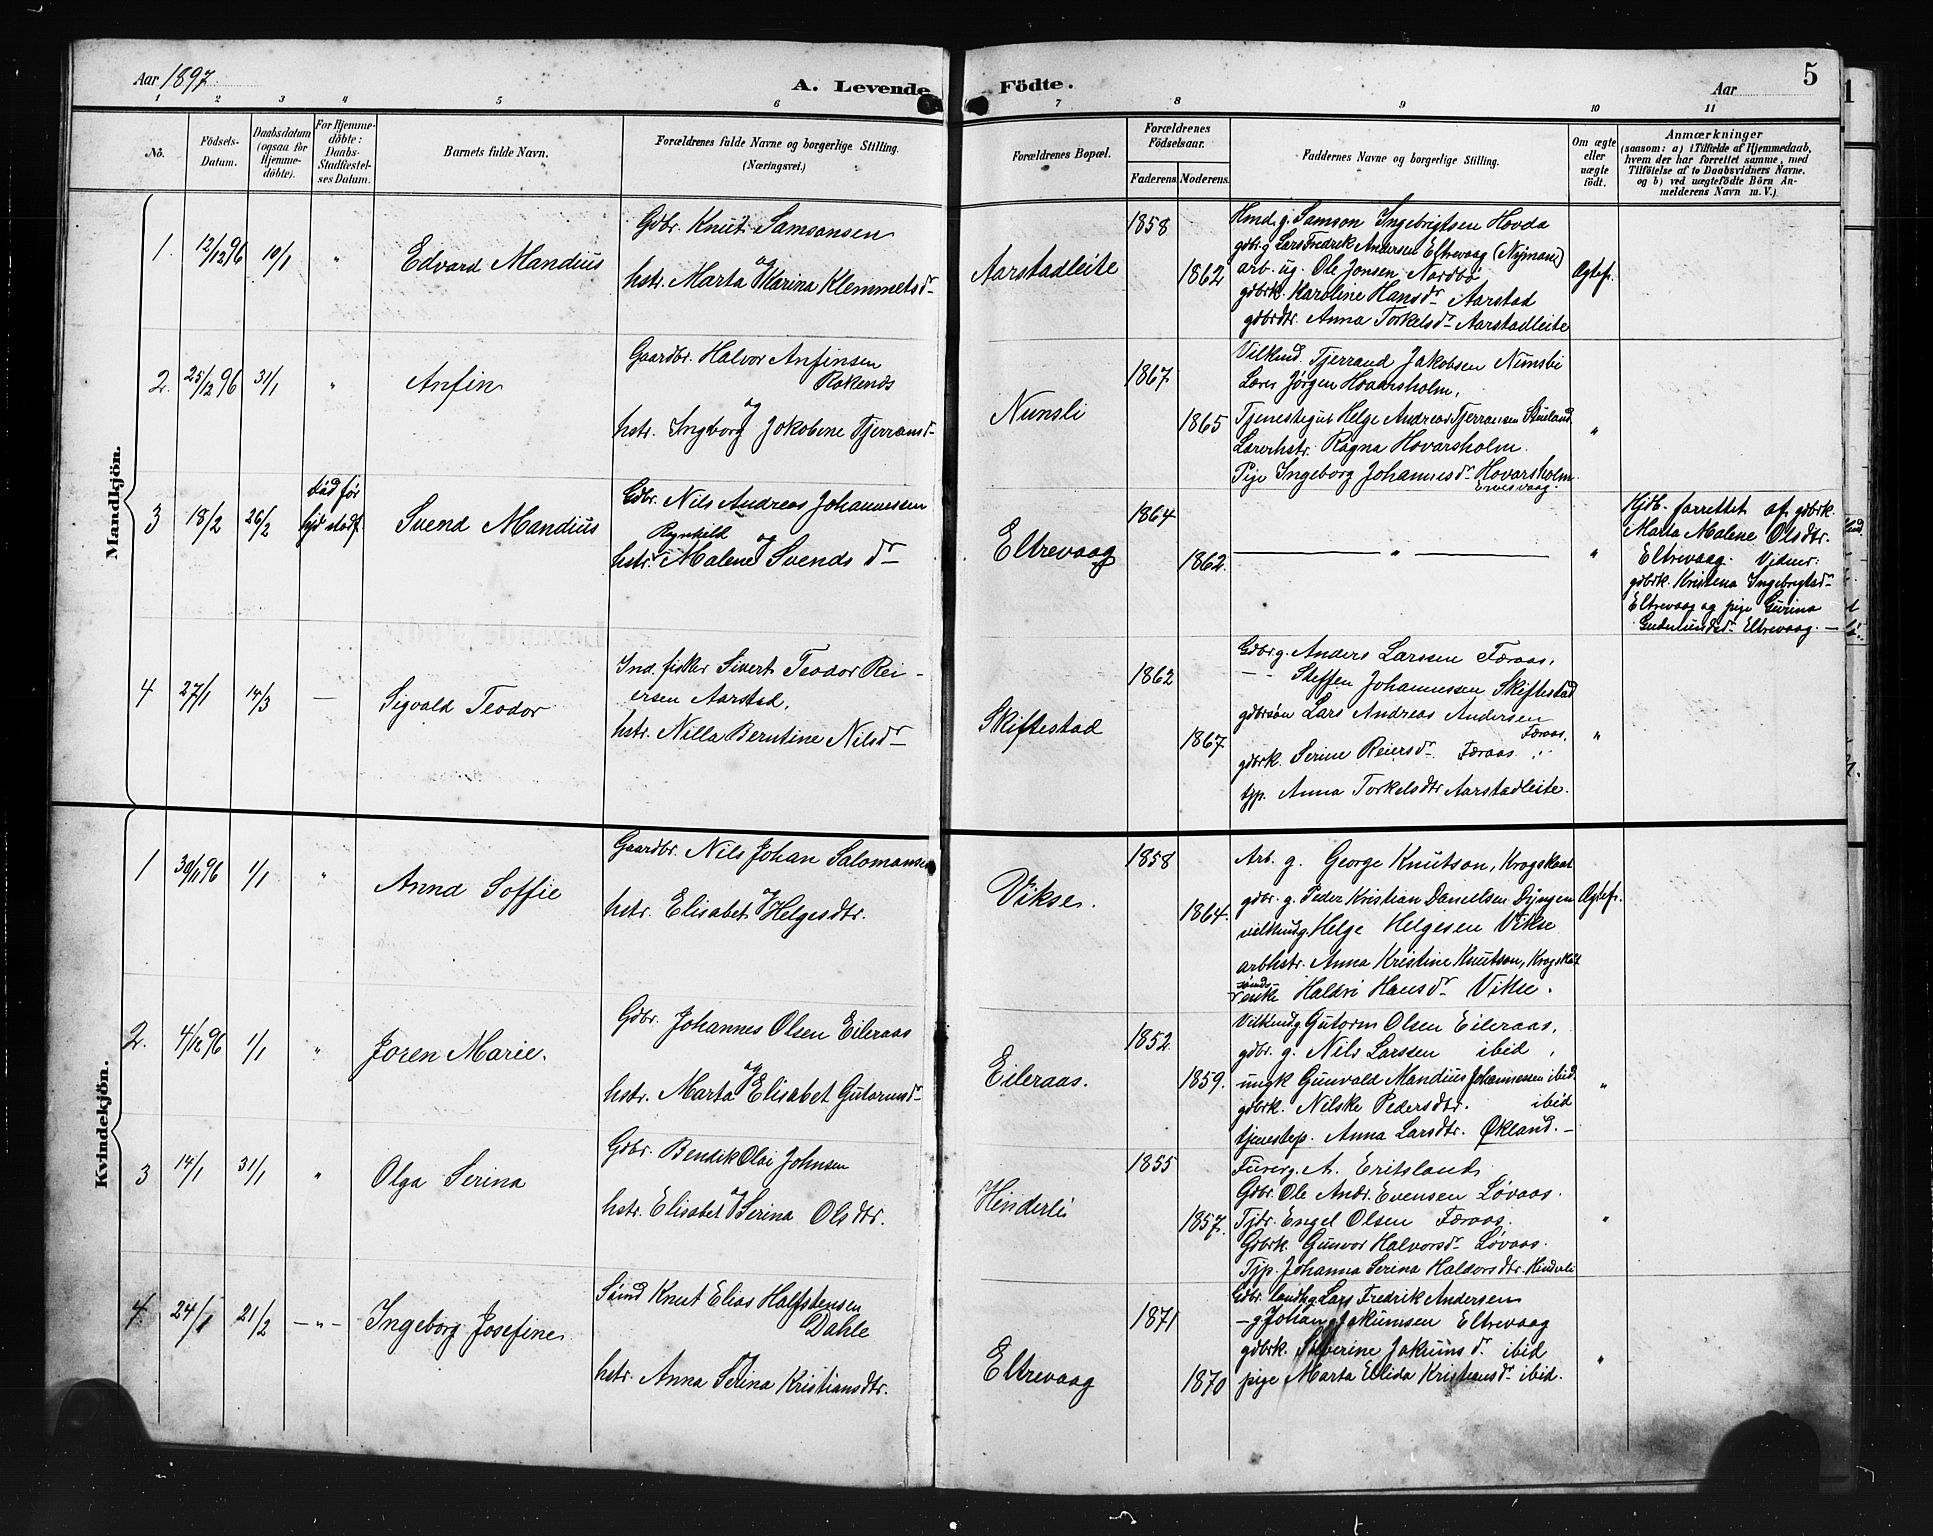 Aar 1897
A. Levende
Födte.
Aar
5
1 2 3 4 5 6 7 8 9 10 11
No.
Födsels-
Datum.
Daabsdatum
(ogsaa for
Hjemme-
döbte).
For Hjemme-
döbte:
Daabs-
Stadfæstel-
ses Datum.
Barnets fulde Navn.
Forældrenes fulde Navne og borgerlige Stilling.
(Næringsvei.)
Forældrenes Bopæl.
Forældrenes
Födselsaar.
Faderens. Moderens.
Faddernes Navne og borgerlige Stilling.
Om ægte
eller
uægte
födt.
Anmærkninger
(saasom: a) i Tilfælde af Hjemmedaab,
hvem der har forrettet samme, med
Tilföielse af to Daabsvidners Navne.
og b) ved uægtefödte Börn An-
melderens Navn m. V.)
Mandkjön.
1. 12/12 96 10/1 " Edvard Mandius
Gdbr. Knut Samsonsen
og
hstr. Marta Karina Klemmetsdr
Aarstadleite
1858
1862
Hmd. g. Samson Ingebrigtsen Hovda
gdbr. g Lars Fredrik Andersen Eltrevaag (Nymane)
arb. ug. Ole Jonsen Nordbø
gdbrk. Karoline Hansdr Aarstad
gdbrdtr. Anna Torkelsdr Aarstadleite
Ægtef.
2. 25/12 96 31/1 " Anfin
Gaardbr. Halvor Anfinsen
Røkenes
og
hstr. Ingborg Jakobine Tjerransd
Nunsli
1867
1865
Vilkmd. Tjerrand Jakobsen Nunsli
Lærer Jørgen Hovarsholm.
Tjenestegut Helge Andreas Tjerransen Stueland
Lærerhstr. Ragna Hovarsholm.
Pije Ingeborg Johannesdr Hovarsholm
"
3 18/2 26/2
død før
hjd stadf.
Svend Mandius
Gdbr. Nils Andreas Johannessen
Regnhild og
hstr. Malene Svends dr
Eltrevaag
1864
1862.
"
"
Hjdb. forrettet af gdbrk.
Marta Malene Olsdtr.
Eltrevaag. Vidner:
gdbrk. Kristena Ingebrigtsd
Eltrevaag og pige Gurina
Gudmundsd Eltrevaag.
4 27/1 14/3 — Sigvald Teodor
Ind. fisker Sivert Teodor Rei-
ersen Aarstad.
hstr. Nilla Berntine Nilsdr
Skiftestad
1862
1867
Gdbr. g. Anders Larssen Færaas.
— - Steffen Johannessen Skiftestad
gdbrsøn Lars Andreas Andersen
Færaas.
gdbrk. Serine Reiersdr Færaas.
tjp. Anna Torkelsdtr Aarstadleite.
"
Kvindekjön.
1 30/11 96 1/1 " Anna Soffie
Gaardbr. Nils Johan Salomonsen
og
hstr. Elisabet Helgesdtr.
Vikse.
1858
1864.
Arb. g. George Knutson, Krogskaat
gdbr. g. Peder Kristian Danielsen Dyngen
vilkmd g. Helge Helgesen Vikse
arbhstr. Anna Kristine Knutson, Krogskat
enke Haldri Hansdr Vikse.
Ægtef.
2. 4/12 96 1/1 " Joren Marie.
Gdbr. Johannes Olsen Eileraas
og
hstr. Marta Elisabet Gutormsd
Eileraas.
1852
1859.
Vilkmd g Gutorm Olsen Eileraas.
gdbr. g. Nils Larssen ibid
ungk Gunvald Mandius Johannessen ibid.
gdbrk. Nilske Pedersdtr. ibid
tjenestep. Anna Larsdtr. Økland. —
"
3 14/1 31/1 " Olga Serina
Gdbr. Bendik Olai Johnsen
og
hstr. Elisabet Serina Olsdtr.
Hinderli
1855
1857.
A. Eritsland
Gdbr. Ole Andr. Evensen Løvaas.
Tjdr. Engel Olsen Færaas.
Gdbrk. Gunvor Halvorsdr Løvaas.
Tjp. Johanna Serina Haldorsdtr. Hinderli
"
4. 24/1 21/2 — " — Ingeborg Josefine
Knut Elias Halfstensen
Dahle
og
hstr. Anna Serina Kristiansdtr.
Eltrevaag
1871
1870
Gdbr. Lars Fredrik Andersen
— g Johan Jakumsen Eltrevaag
gdbrk. Severine Jakums dr ibid
pige Marta Elida Kristiansdr ibid.
"